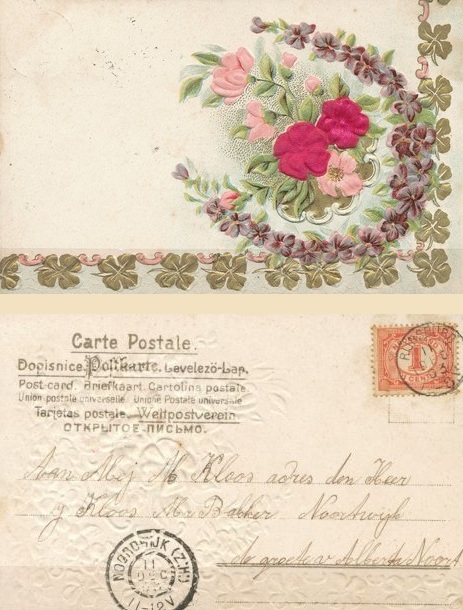 Carte Postale.
Dopisnice. Postkarte. Levelező-Lap.
Post card. Briefkaart. Cartolina postale.
Union postale universelle. Unione Postale universale
Tarjetas postale. Weltpostverein
ОТКРЫТОЕ ПИСЬМО.
RIJNSBURG
1
Aan Mej M Kloos adres den Heer
J Kloos Mr Bakker Noortwijk
de groete v Alberta Noort
NOORDWIJK (Z:H)
11
DEC
11-12V